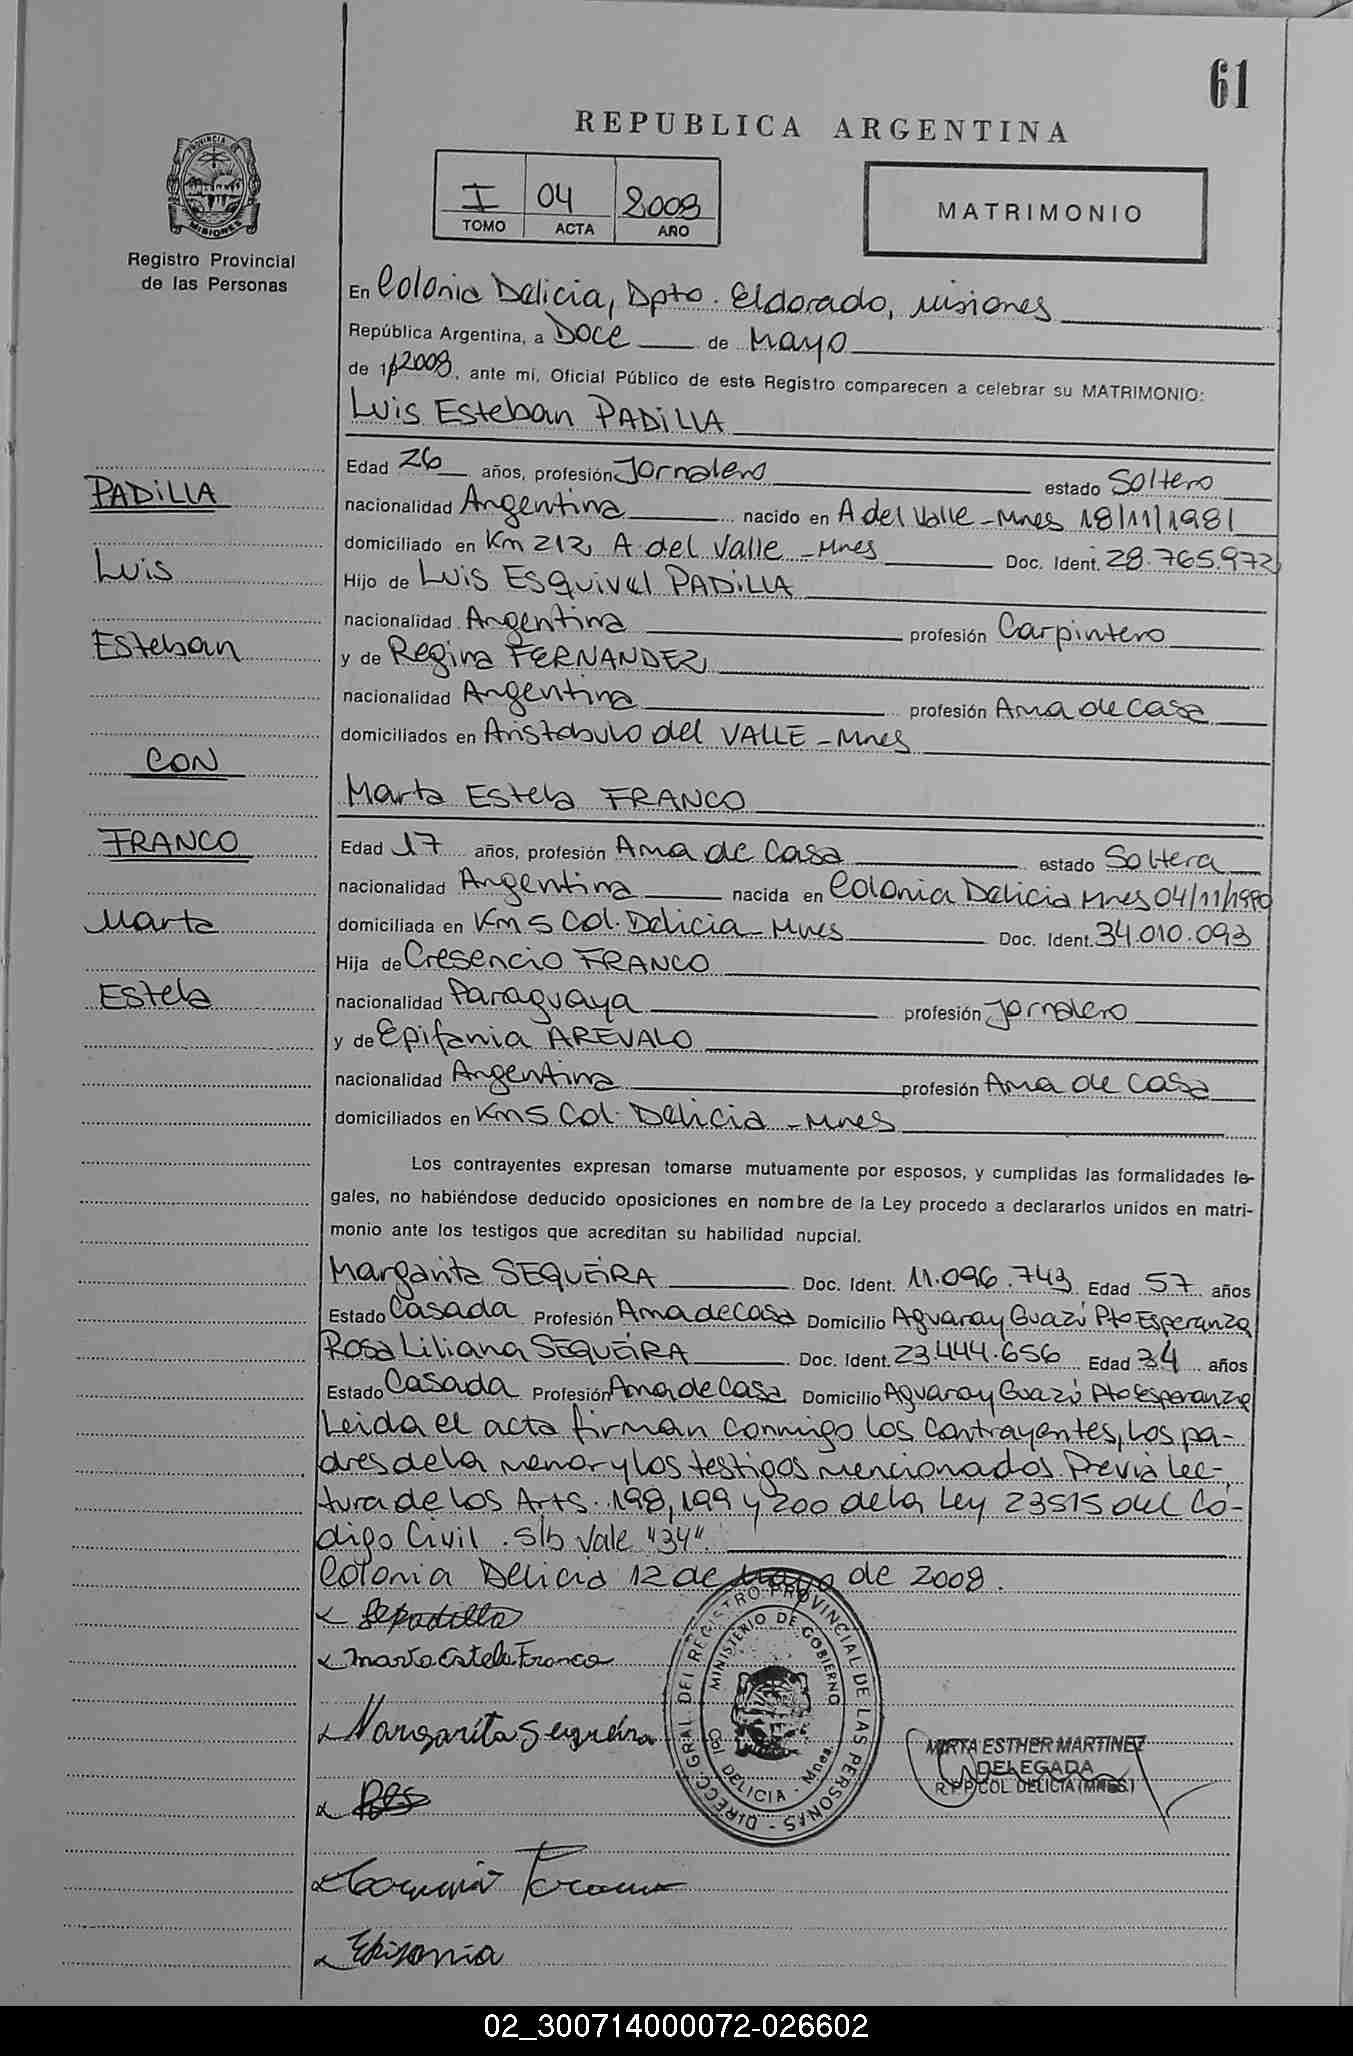 61
REPUBLICA ARGENTINA
PROVINCIA DE
MISIONES
Registro Provincial
de las Personas
I 04 2008
TOMO ACTA AÑO
MATRIMONIO
En Colonia Delicia, Dpto. Eldorado, Misiones
República Argentina, a Doce de Mayo
de 2008, ante mí, Oficial Público de este Registro comparecen a celebrar su MATRIMONIO:
Luis Esteban PADILLA
Edad 26 años, profesión Jornalero estado Soltero
PADILLA
nacionalidad Argentina nacido en A del Valle - Mnes 18/11/1981
domiciliado en Km 212 A. del Valle - Mnes Doc. Ident. 28.765.972
Luis
Hijo de Luis Esquivel PADILLA
nacionalidad Argentina profesión Carpintero
Esteban
y de Regina FERNANDEZ
nacionalidad Argentina profesión Ama de casa
domiciliados en Aristobulo del VALLE - Mnes
CON
Marta Estela FRANCO
FRANCO
Edad 17 años, profesión Ama de casa estado Soltera
nacionalidad Argentina nacida en Colonia Delicia Mnes 04/11/1990
Marta
domiciliada en Km 5 Col. Delicia - Mnes Doc. Ident. 34.010.093
Hija de Cresencio FRANCO
Estela
nacionalidad Paraguaya profesión Jornalero
y de Epifania AREVALO
nacionalidad Argentina profesión Ama de casa
domiciliados en Km 5 Col. Delicia - Mnes
Los contrayentes expresan tomarse mutuamente por esposos, y cumplidas las formalidades le-
gales, no habiéndose deducido oposiciones en nombre de la Ley procedo a declararlos unidos en matri-
monio ante los testigos que acreditan su habilidad nupcial.
Margarita SEQUEIRA Doc. Ident. 11.096.743 Edad 57 años
Estado Casada Profesión Ama de casa Domicilio Aguaray Guazú Pto Esperanza
Rosa Liliana SEQUEIRA Doc. Ident. 23.444.656 Edad 34 años
Estado Casada Profesión Ama de casa Domicilio Aguaray Guazú Pto Esperanza
Leida el acta firman conmigo los contrayentes, los pa-
dres de la menor y los testigos mencionados. Previa lec-
tura de los Arts. 198, 199 y 200 de la Ley 23515 del Có-
digo Civil. s/b vale "34".
Colonia Delicia 12 de Mayo de 2008.
Marta Estela Franco
Margarita Sequeira
DIRECC. GRAL. DEL REGISTRO PROVINCIAL DE LAS PERSONAS
MINISTERIO DE GOBIERNO
Col. DELICIA - Mnes.
MIRTA ESTHER MARTINEZ
DELEGADA
R.P.P. COL. DELICIA (MNES.)
Franco
Epifania
02_300714000072-026602